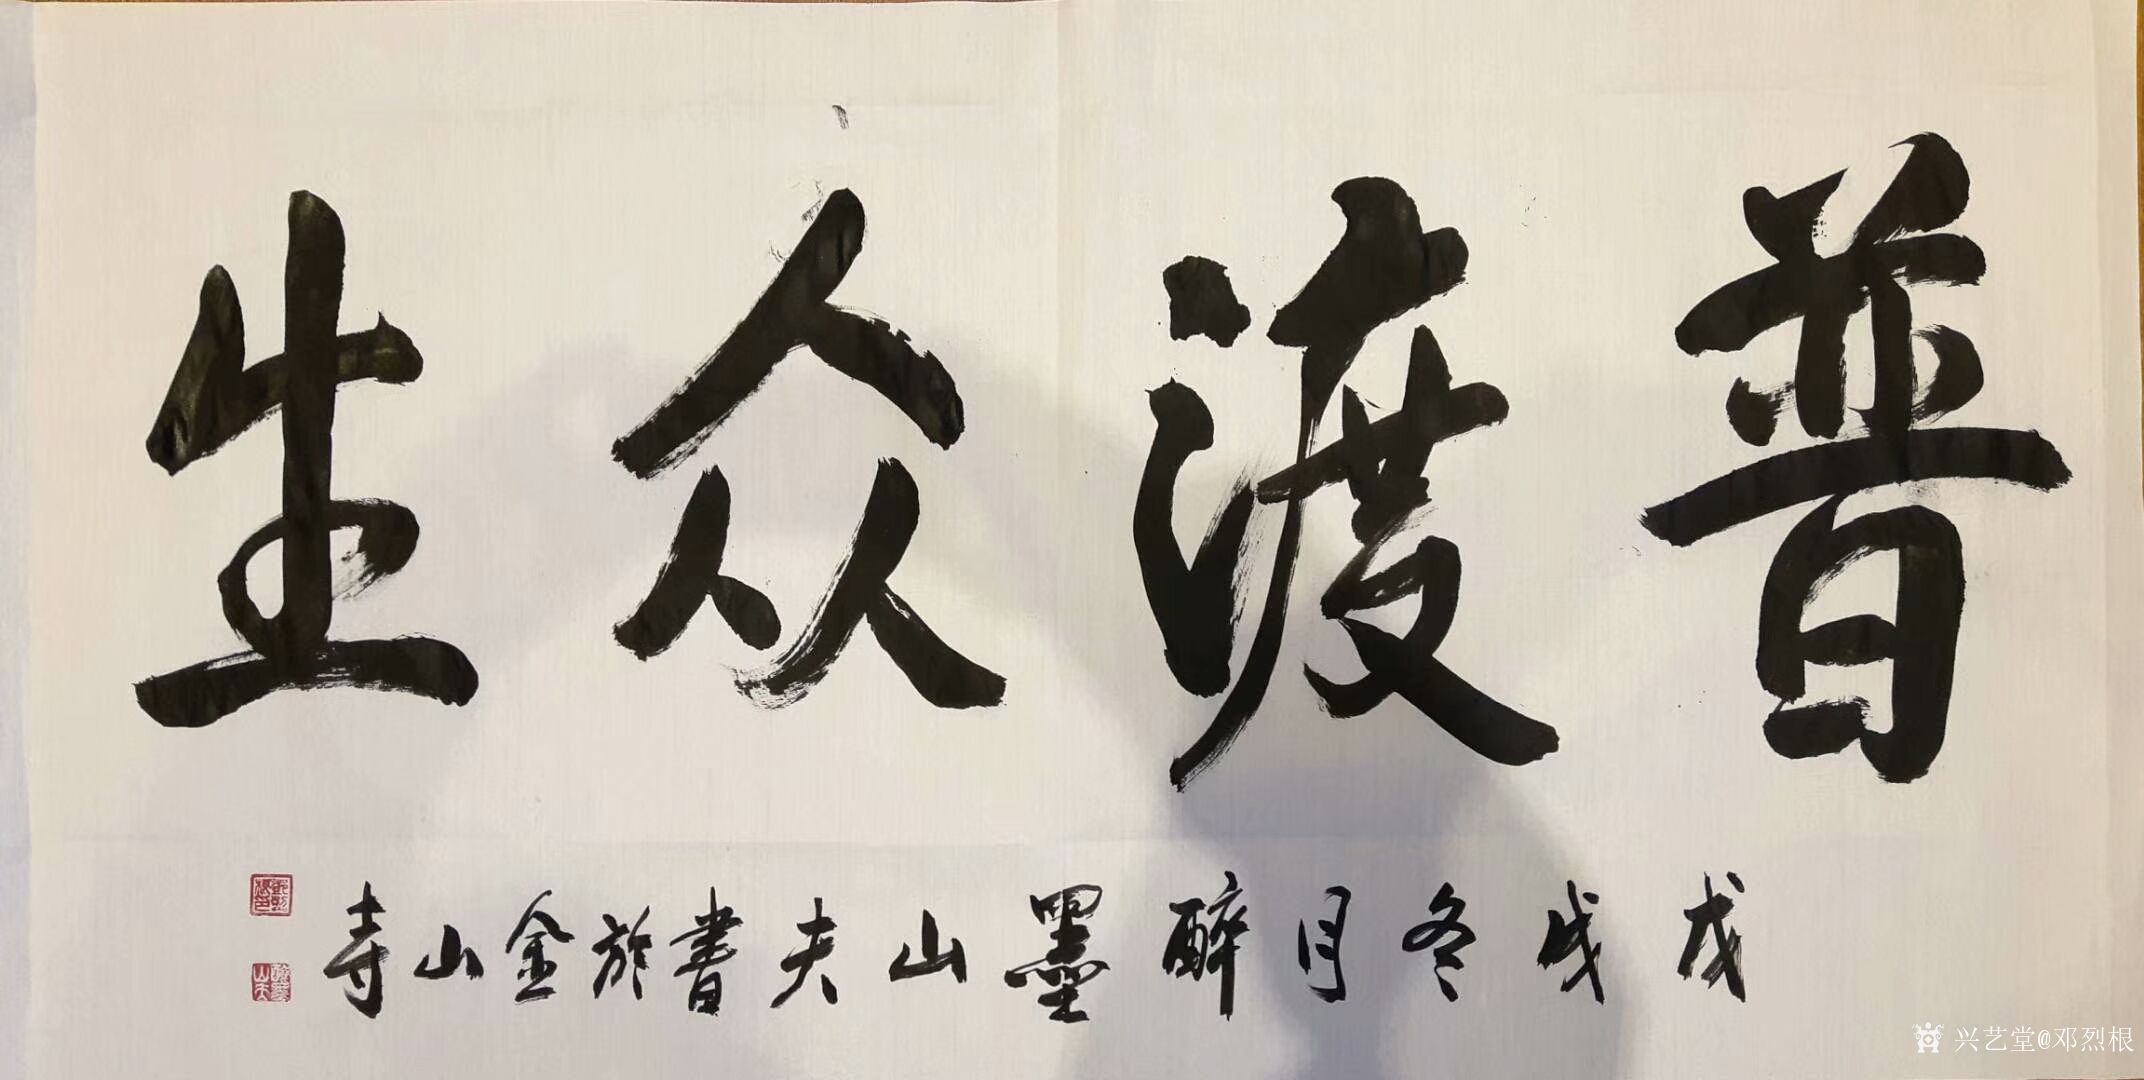 普渡众生
戊戌冬月醉墨山夫書於金山寺
兴艺堂@邓烈根